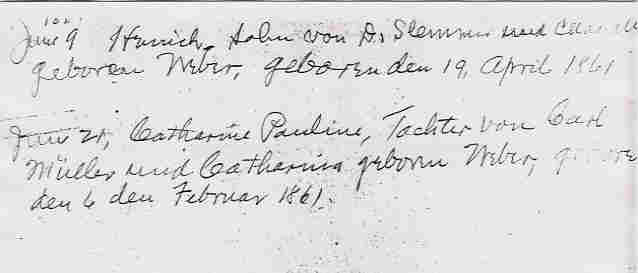 June 9 Henrich, Sohn von D. Slemmer und
geboren Weber, geboren den 19, April 1861
June 21, Catharine Pauline, Tachter von Carl
Müller und Catharina geboren Weber,
den 6 den Februar 1861.